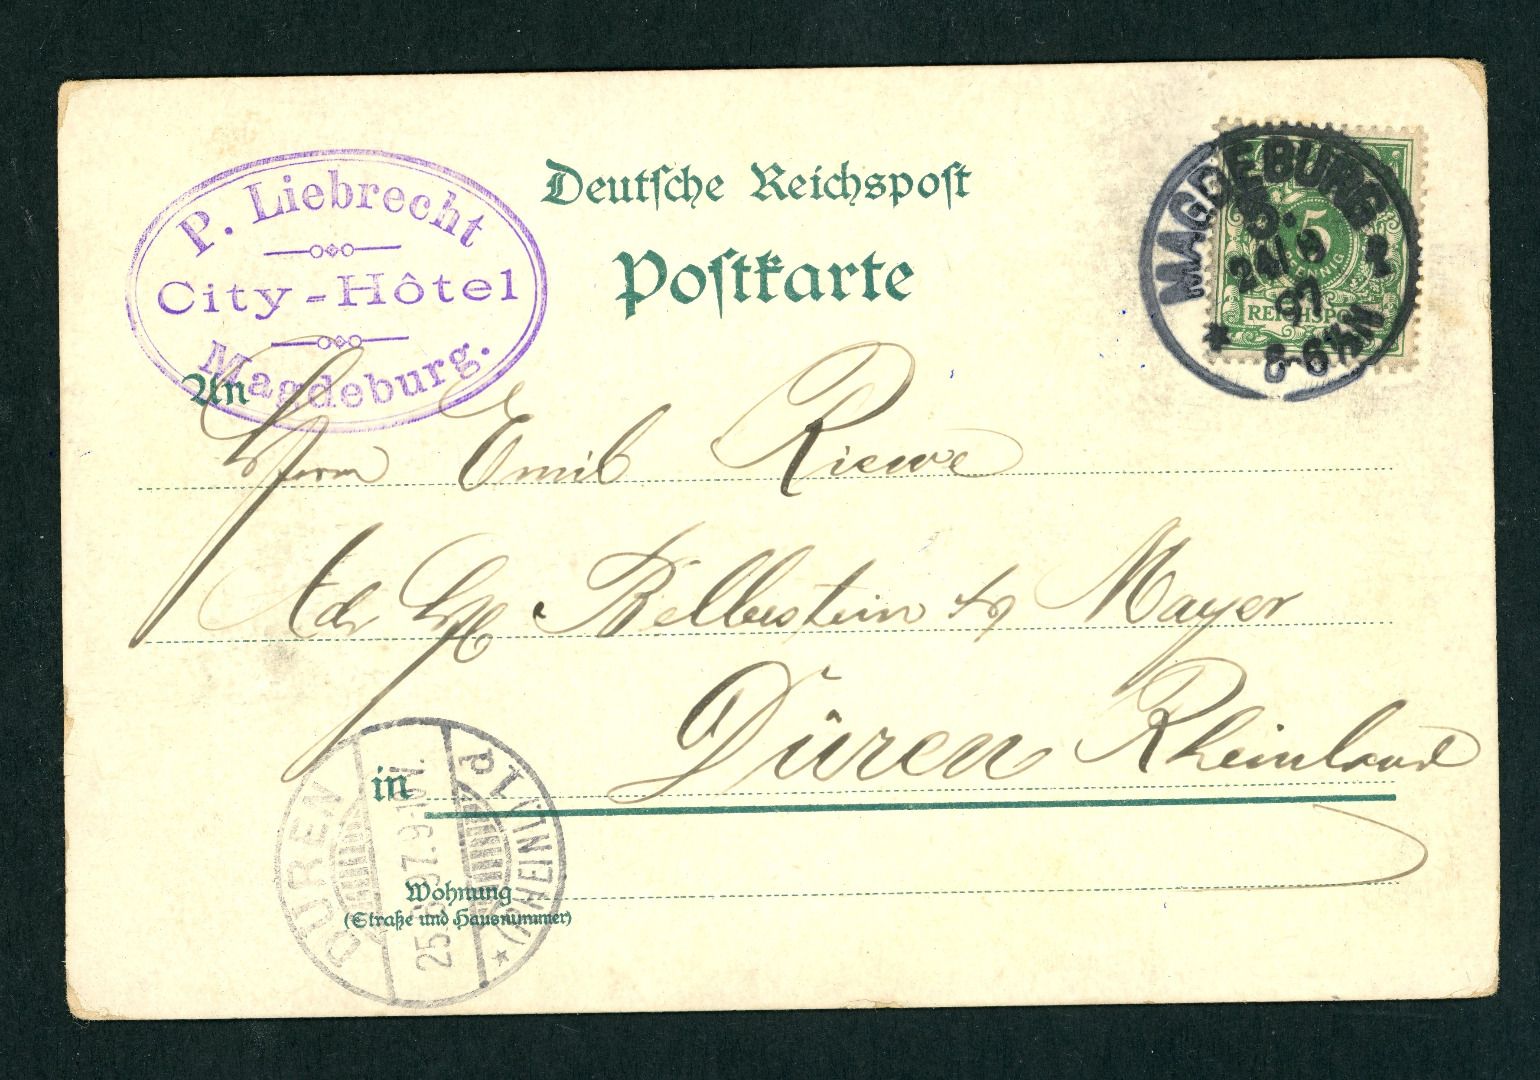 P. Liebrecht
City-Hôtel
Magdeburg.
Deutsche Reichspost
Postkarte
MAGDEBURG
5.
24/8
97
6-7N
5
PFENNIG
REICHSPOST
An
Herrn Emil Riewe
Adr. Bellerstein & Mayer
Düren Rheinland
in
Wohnung
(Straße und Hausnummer)
DÜREN
(RHEINL.)
25.8.97.9-10N.